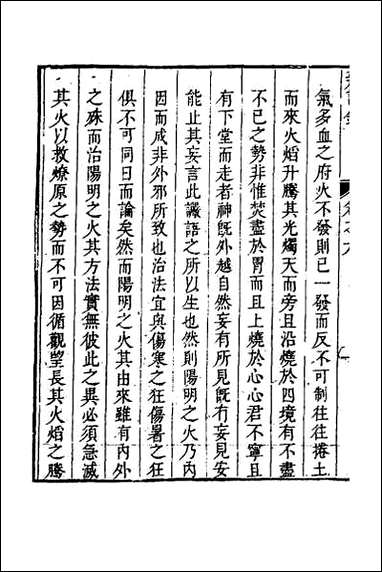 氣多血之府火不發則已一發而反不可制往往捲土
而來火焰升騰其光燭天而旁且沿燒於四境有不盡
不已之勢非惟焚盡於胃而且上燒於心心君不寧且
有下堂而走者神旣外越自然妄有所見旣有妄見安
能止其妄言此譫語之所以生也然則陽明之火乃內
因而成非外邪所致也治法宜與傷寒之狂傷暑之狂
俱不可同日而論矣然而陽明之火其由來雖有內外
之殊而治陽明之火其方法實無彼此之異必須急滅
其火以救燎原之勢而不可因循觀望長其火焰之騰